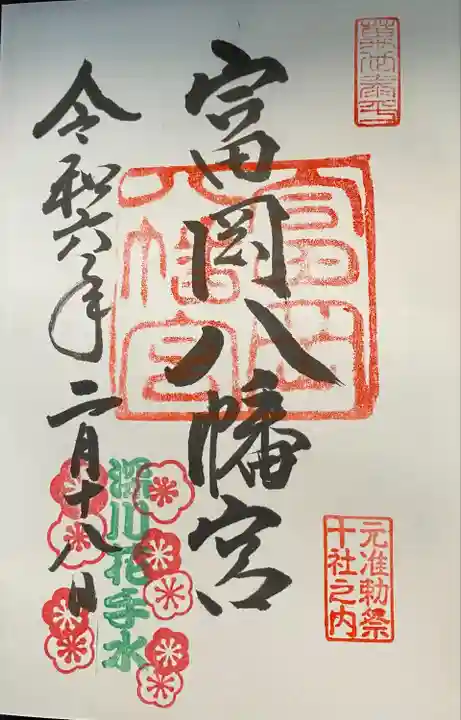 富岡八幡宮
富岡
八幡宮
元准勅祭
十社之内
令和六年二月十八日
深川花手水